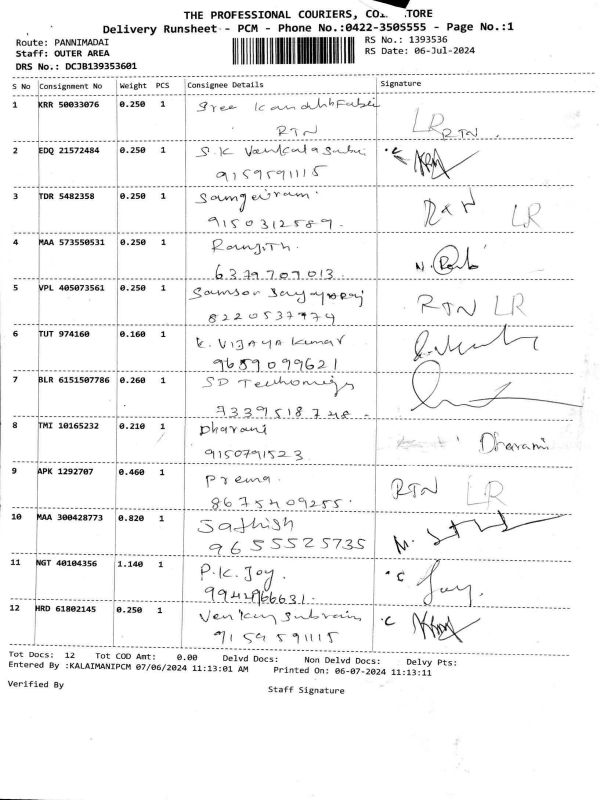 THE PROFESSIONAL COURIERS, CO
Delivery Runsheet - PCM - Phone No.:0422-3505555 - Page No.:1
Route: PANNIMADAI
RS No.: 1393536
Staff: OUTER AREA
RS Date: 06-Jul-2024
DRS No.: DCJB139353601
S No Consignment No Weight PCS Consignee Details Signature
1 KRR 50033076 0.250 1 Sree
RTN LR RTN
2 EDQ 21572484 0.250 1 S.K
9159591115
3 TDR 5482358 0.250 1 LR
9150312589
4 MAA 573550531 0.250 1 Ranjith
6379707013
5 VPL 405073561 0.250 1 Samson RTN LR
8220537974
6 TUT 974160 0.160 1 K. VIJAYA Kumar
9659099621
7 BLR 6151507786 0.260 1 SD
7339518748
8 TMI 10165232 0.210 1 Dharani Dharani
9150791523
9 APK 1292707 0.460 1 Prema RTN LR
8675409255
10 MAA 300428773 0.820 1 Sathish
9655525735
11 NGT 40104356 1.140 1 P.K. Joy. Joy
12 HRD 61802145 0.250 1
9159591115
Tot Docs: 12 Tot COD Amt: 0.00 Delvd Docs: Non Delvd Docs: Delvy Pts:
Entered By :KALAIMANIPCM 07/06/2024 11:13:01 AM Printed On: 06-07-2024 11:13:11
Verified By Staff Signature